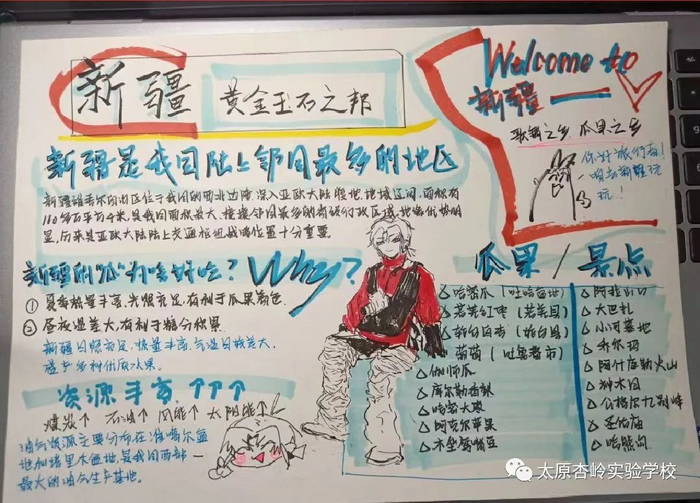 新疆 黄金玉石之邦
Welcome to
新疆——
歌舞之乡 瓜果之乡
你好旅行者!
玩!
新疆是我国陆上邻国最多的地区
新疆维吾尔自治区位于我国的西北边陲,深入亚欧大陆腹地,地域辽阔,面积有
160多万平方千米,是我国面积最大、接接邻国最多的省级行政区域,地缘优势明
显,历来是亚欧大陆陆上交通枢纽,战略位置十分重要。
新疆的"瓜"为啥好吃? Why?
① 夏季热量丰富,光照充足,有利于瓜果着色.
② 昼夜温差大,有利于糖分积累.
新疆日照充足,热量丰富,气温日较差大,
盛产多种优质水果。
资源丰富,个个个
煤炭↑ 石油↑ 风能↑ 太阳能↑
油气资源主要分布在准噶尔盆
地和塔里木盆地,是我国西部一
最大的油气生产基地。
瓜果 / 景点
△哈密瓜(吐哈盆地)
△若羌红枣(若羌县)
△鄯善
△葡萄(吐鲁番市)
△伽师瓜
△库尔勒香梨
△哈密大枣
△阿克苏苹果
△木垒鹰嘴豆
△阿拉山口
△大巴扎
△小河墓地
△乔尔玛
△阿什库勒火山
△神木园
△公格尔九别峰
△圣佑庙
△哈熊沟
太原杏岭实验学校